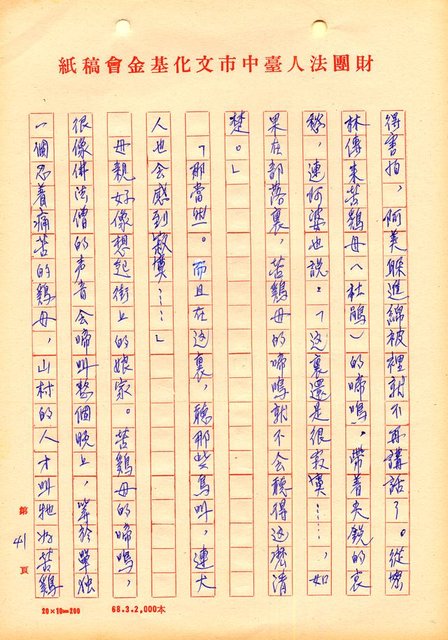 財團法人臺中市文化基金會稿紙
得害怕，阿美躲進綿被裡就不再講話了。從密
林傳來苦鷄母（杜鵑）的啼鳴，帶着尖銳的哀
愁，連阿婆也說：「这裏還是很寂寞……，如
果在部落裏，苦鷄母的啼鳴就不会聽得这麽清
楚。」
「那當然。而且在这裏，聽那些鳥叫，連大
人也会感到寂寞……」
母親好像想起街上的娘家。苦鷄母的啼鳴，
很像佛法僧的声音会啼叫整個晚上，等於單独
一個忍着痛苦的鷄母，山村的人才叫牠为苦鷄
第 41 頁
20×10=200
68.3.2,000本